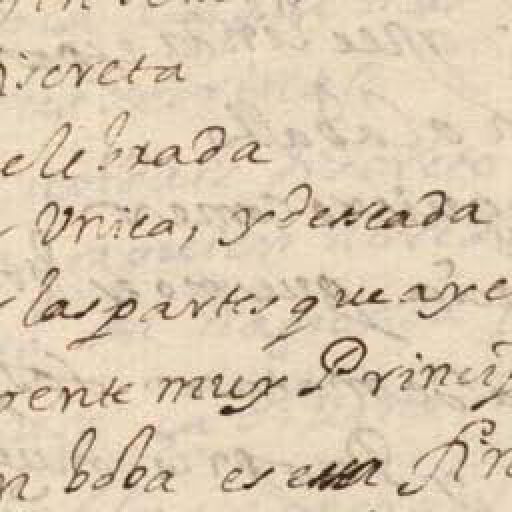 discreta
celebrada
Unica, y desseada
las partes que ay e
gente muy Princip
boba es en